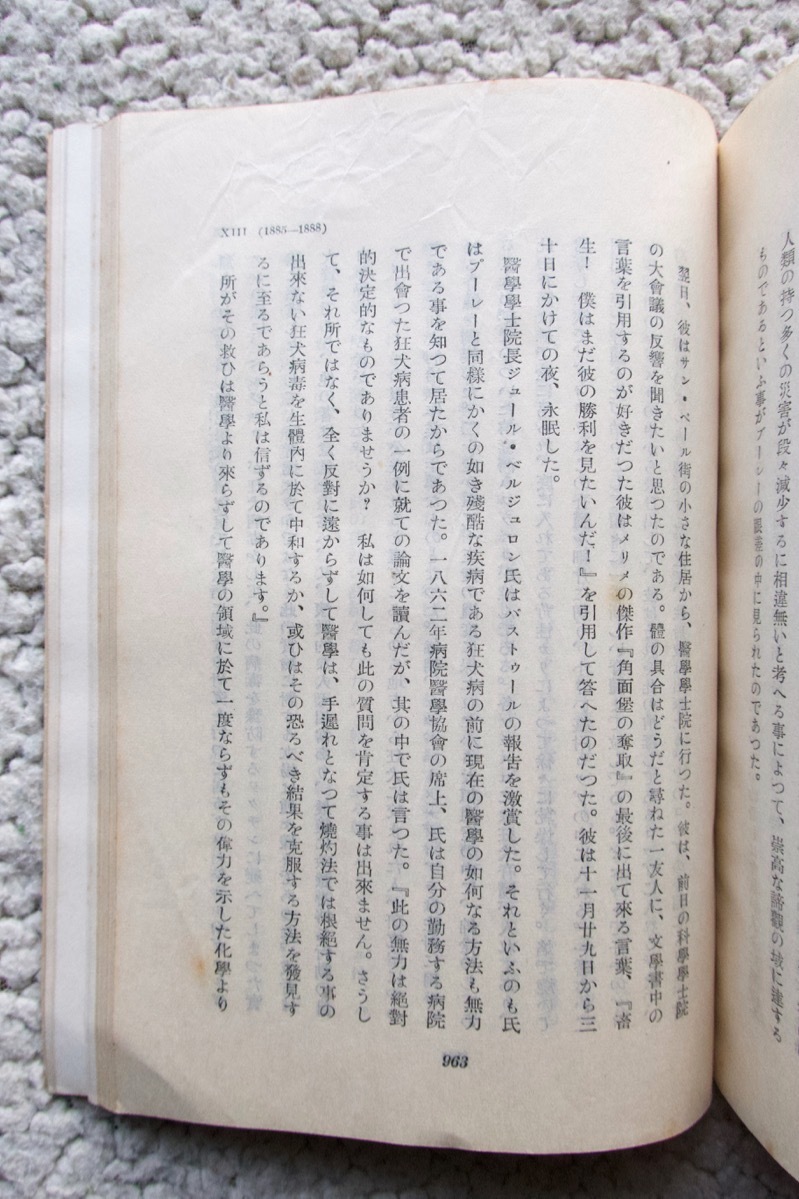 人類の持つ多くの災害が段々減少するに相違無いと考へる事によつて、崇高な諦觀の域に達する
ものであるといふ事がブーレーの眼差の中に見られたのであつた。
翌日、彼はサン・ペール街の小さな住居から、醫學學士院に行つた。彼は、前日の科學學士院
の大會議の反響を聞きたいと思つたのである。體の具合はどうだと尋ねた一友人に、文學書中の
言葉を引用するのが好きだつた彼はメリメの傑作『角面堡の奪取』の最後に出て來る言葉、『畜
生! 僕はまだ彼の勝利を見たいんだ!』を引用して答へたのだつた。彼は十一月廿九日から三
十日にかけての夜、永眠した。
醫學學士院長ジュール・ベルジュロン氏はパストゥールの報告を激賞した。それといふのも氏
はブーレーと同樣にかくの如き殘酷な疾病である狂犬病の前に現在の醫學の如何なる方法も無力
である事を知つて居たからであつた。一八六二年病院醫學協會の席上、氏は自分の勤務する病院
で出會つた狂犬病患者の一例に就ての論文を讀んだが、其の中で氏は言つた。『此の無力は絕對
的決定的なものでありませうか? 私は如何しても此の質問を肯定する事は出來ません。さうし
て、それ所ではなく、全く反對に遠からずして醫學は、手遲れとなつて燒灼法では根絕する事の
出來ない狂犬病毒を生體內に於て中和するか、或ひはその恐るべき結果を克服する方法を發見す
るに至るであらうと私は信ずるのであります。』
所がその救ひは醫學より來らずして醫學の領域に於て一度ならずもその偉力を示した化學より
XIII (1885—1888)
963